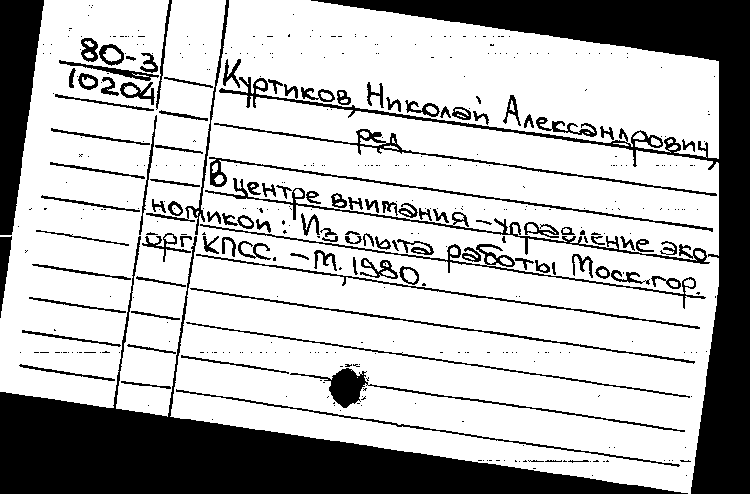 80-3
10204
Куртиков, Николай Александрович,
ред
В центре внимания - управление эко-
номикой: Из опыта работы Моск. гор.
орг. КПСС. - М., 1980.